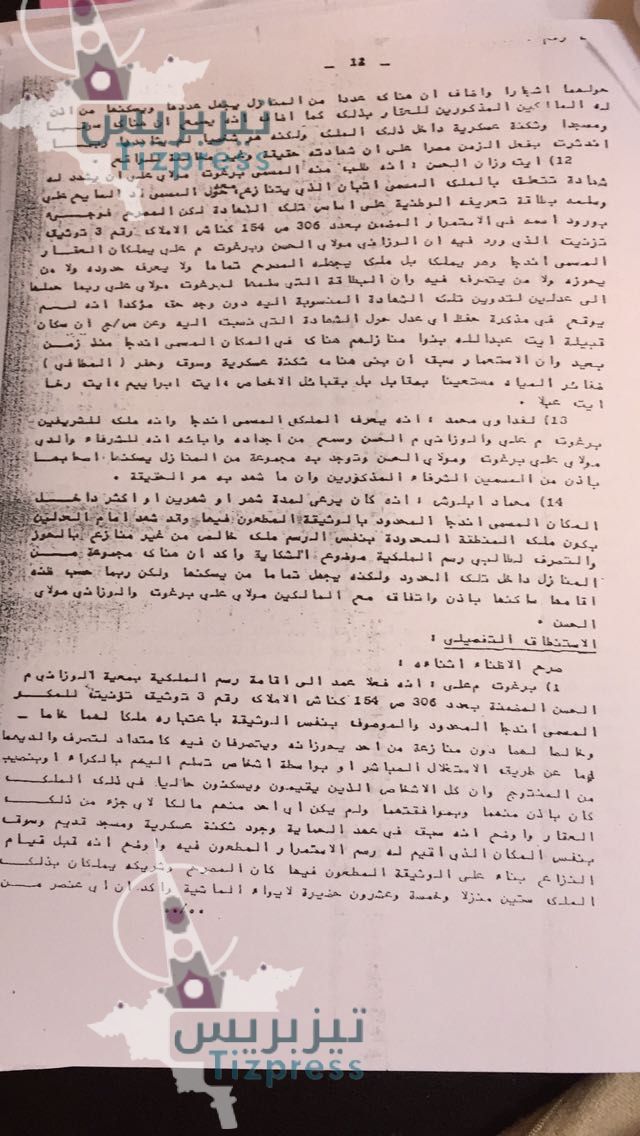 - 12 -
حولهما اشجارا واضاف ان هناك عددا من المنازل يجهل عددها ويسكنها من اذن
له المالكين المذكورين للعقار بذلك كما اضاف انه سمع ان هناك سوقا
ومسجدا وثكنة عسكرية داخل ذلك الملك ولكنه هو شخصيا لم يشاهدها وربما
اندثرت بفعل الزمن مصرا على ان شهادته حقيقة وغير مخالفة للواقع
12) ايت وزان الحسن : انه طلب منه المسمى برغوت مولاي علي ان يشهد له
شهادة تتعلق بالملك المسمى يتنازع حوله المسمى
وسلمه بطاقة تعريفه الوطنية على اساس تلك الشهادة لكن المصرح فوجىء
بورود اسمه في الاستمرار المضمن بعدد 306 ص 154 كناش الاملاك رقم 3 توثيق
تزنيت الذي ورد فيه ان الوزاني مولاي الحسن وبرغوت م علي يملكان العقار
المسمى اندجا وهو يملكا بل ملك يجهله المصرح تماما ولا يعرف حدوده ولا من
يحوزه ولا من يتصرف فيه وان البطاقة التي سلمها لبرغوت مولاي علي ربما حملها
الى عدلين لتدوين تلك الشهادة المنسوبة اليه دون وجه حق مؤكدا انه لم
يوقع في مذكرة حفظ اي عدل حول الشهادة التي نسبت اليه وعن س/ج ان سكان
قبيلة ايت عبدالله بنوا منازلهم هناك في المكان المسمى اندجا منذ زمن
بعيد وان الاستعمار سبق ان بنى هنامه ثكنة عسكرية وسوق وحفر ( المطافي )
خفائر المياه مستعينا بمقابل بل بقبائل الاخصاص ،ايت ابراييم ،ايت رخا
ايت عبلا .
13) لغداوي محمد : انه يعرف الملك المسمى اندجا وانه ملك للشريفين
برغوت م علي والوزاني م الحسن وسمع من اجداده وابائه انه للشرفاء والدي
مولاي علي برغوت ومولاي الحسن وتوجد به مجموعة من المنازل يسكنها اصحابها
باذن من المسمين الشرفاء المذكورين وان ما شهد به هو الحقيقة .
14) محماد ابلوش : انه كان يرعى لمدة شهر او شهرين او اكثر داخل
المكان المسمى اندجا المحدود بالوثيقة المطعون فيها وقد شهد امام العدلين
بكون ملك المنطقة المحدودة بنفس الرسم ملك خالص من غير منازع بالحوز
والتصرف لطالبي رسم الملكية موضوع الشكاية واكد ان هناك مجموعة من
المنازل داخل تلك الحدود ولكنه يجهل تماما من يسكنها ولكن ربما حسب ظنه
اقامها ساكنها باذن واتفاق مع المالكين مولاي علي برغوت والوزاني مولاي
الحسن .
الاستنطاق التفصيلي :
صرح الاظناء اثناءه :
1) برغوت م علي : انه فعلا عمد الى اقامة رسم الملكية بمعية الوزاني م
الحسن المضمنة بعدد 306 ص 154 كناش الاملاك رقم 3 توثيق تزنيت للمكان
المسمى اندجا المحدود والموصوف بنفس الوثيقة باعتباره ملكا لهما خاصا -
وخالصا لهما دون منازعة من احد يحوزانه ويتصرفان فيه كامتداد لتصرف والديهما
اما عن طريق الاستغلال المباشر او بواسطة اشخاص تسلم اليهم بالكراء او بنصيب
من المنتوج وان كل الاشخاص الذين يقيمون ويسكنون حاليا في ذلك الملك
كان باذن منهما وبموافقتهما ولم يكن اي احد منهم مالكا لاي جزء من ذلك
العقار واوضح انه سبق في عهد الحماية وجود ثكنة عسكرية ومسجد قديم وسوق
بنفس المكان الذي اقيم له رسم الاستمرار المطعون فيه واوضح انه قبل قيام
النزاع بناء على الوثيقة المطعون فيها كان المصرح وشريكه يملكان بذلك
الملك ستين منزلا وخمسة وعشرون حضيرة لايواء الماشية واكد ان اي عنصر من
../..
تيزبريس
Tizpress
تيزبريس
Tizpress